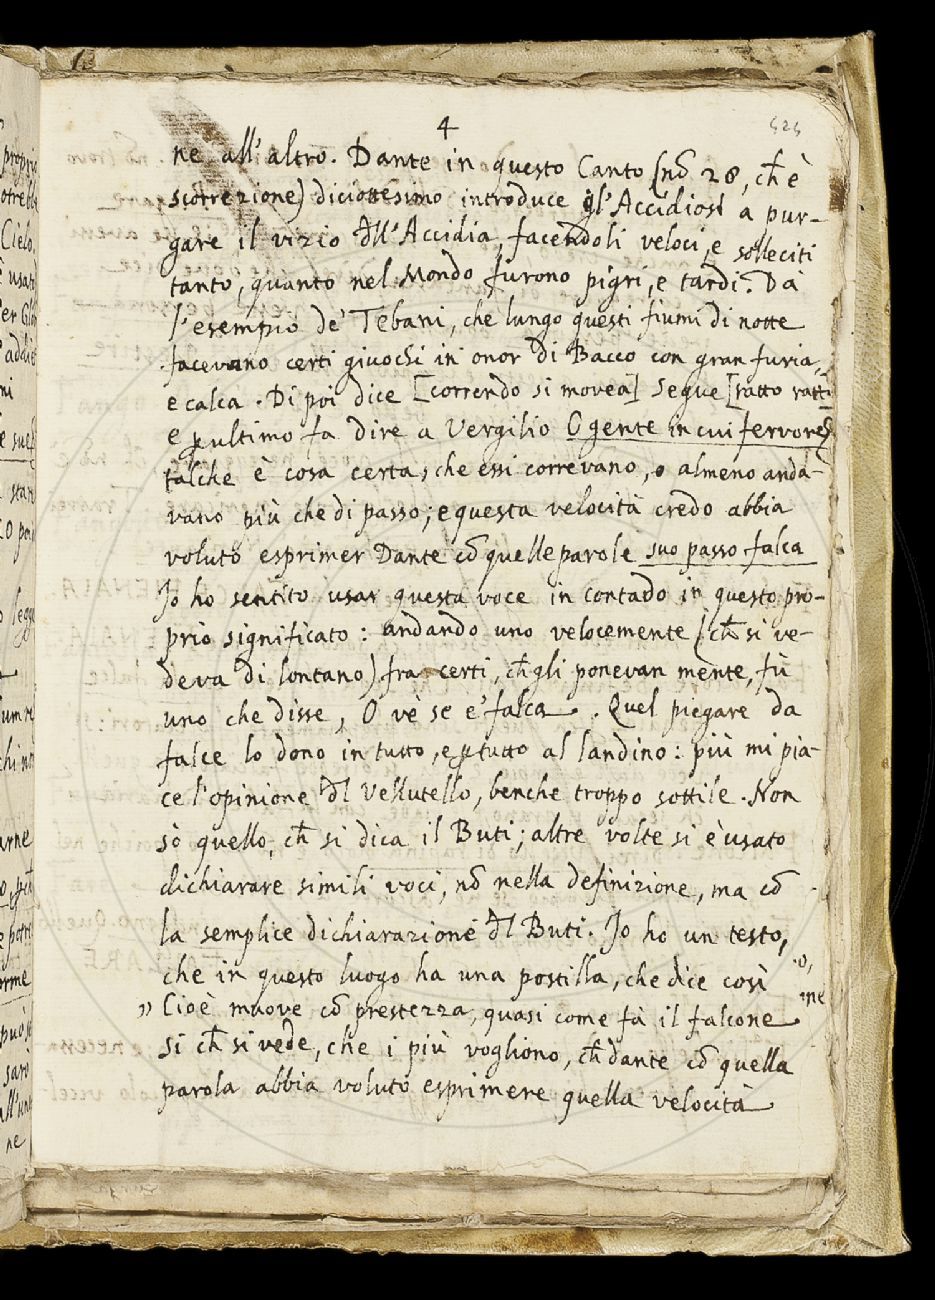 4
ne all'altro. Dante in questo Canto (nō 28, ch̄ è
scorrezione) diciottesimo introduce gl'Accidiosi a pur-
gare il vizio dll'Accidia, facendoli veloci, e solleciti
tanto, quanto nel Mondo furono pigri, e tardi. Dà
l'esempio de' Tebani, che lungo questi fiumi di notte
facevano certi giuochi in onor di Bacco con gran furia,
e calca. Di poi dice [correndo si movea] Segue [ratto ratto]
e p ultimo fa dire a Vergilio O gente in cui fervore &
talche è cosa certa, che essi correvano, o almeno anda-
vano più che di passo; e questa velocità credo abbia
voluto esprimer Dante cō quelle parole suo passo falca
Jo ho sentito usar questa voce in contado in questo pro-
prio significato: andando uno velocemente (ch̄ si ve-
deva di lontano) fra certi, ch̄ gli ponevan mente, fù
uno che disse, O vè se e' falca. Quel piegare da
falce lo dono in tutto, e p tutto al landino: più mi pia-
ce l'opinione dl Vellutello, benche troppo sottile. Non
sò quello, ch̄ si dica il Buti; altre volte si è usato
dichiarare simili voci, nō nella definizione, ma cō
la semplice dichiarazione dl Buti. Jo ho un testo,
che in questo luogo ha una postilla, che dice così
" Cioè muove cō prestezza, quasi come fà il falcone
si ch̄ si vede, che i più vogliono, ch̄ dante cō quella
parola abbia voluto esprimere quella velocità